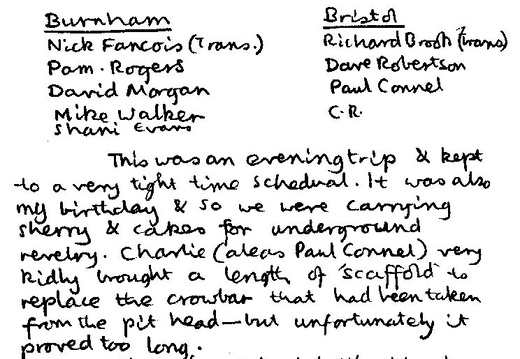 Burnham Bristol
Nick Fancois (Trans.) Richard Brooh (trans)
Pam. Rogers Dave Robertson
David Morgan Paul Connel
Mike Walker C.R.
Shani Evans
This was an evening trip & kept
to a very tight time schedual. It was also
my birthday & so we were carrying
sherry & cakes for underground
revelry. Charlie (aleas Paul Connel) very
kidly brought a length of scaffold to
replace the crowbar that had been taken
from the pit head—but unfortunately it
proved too long.